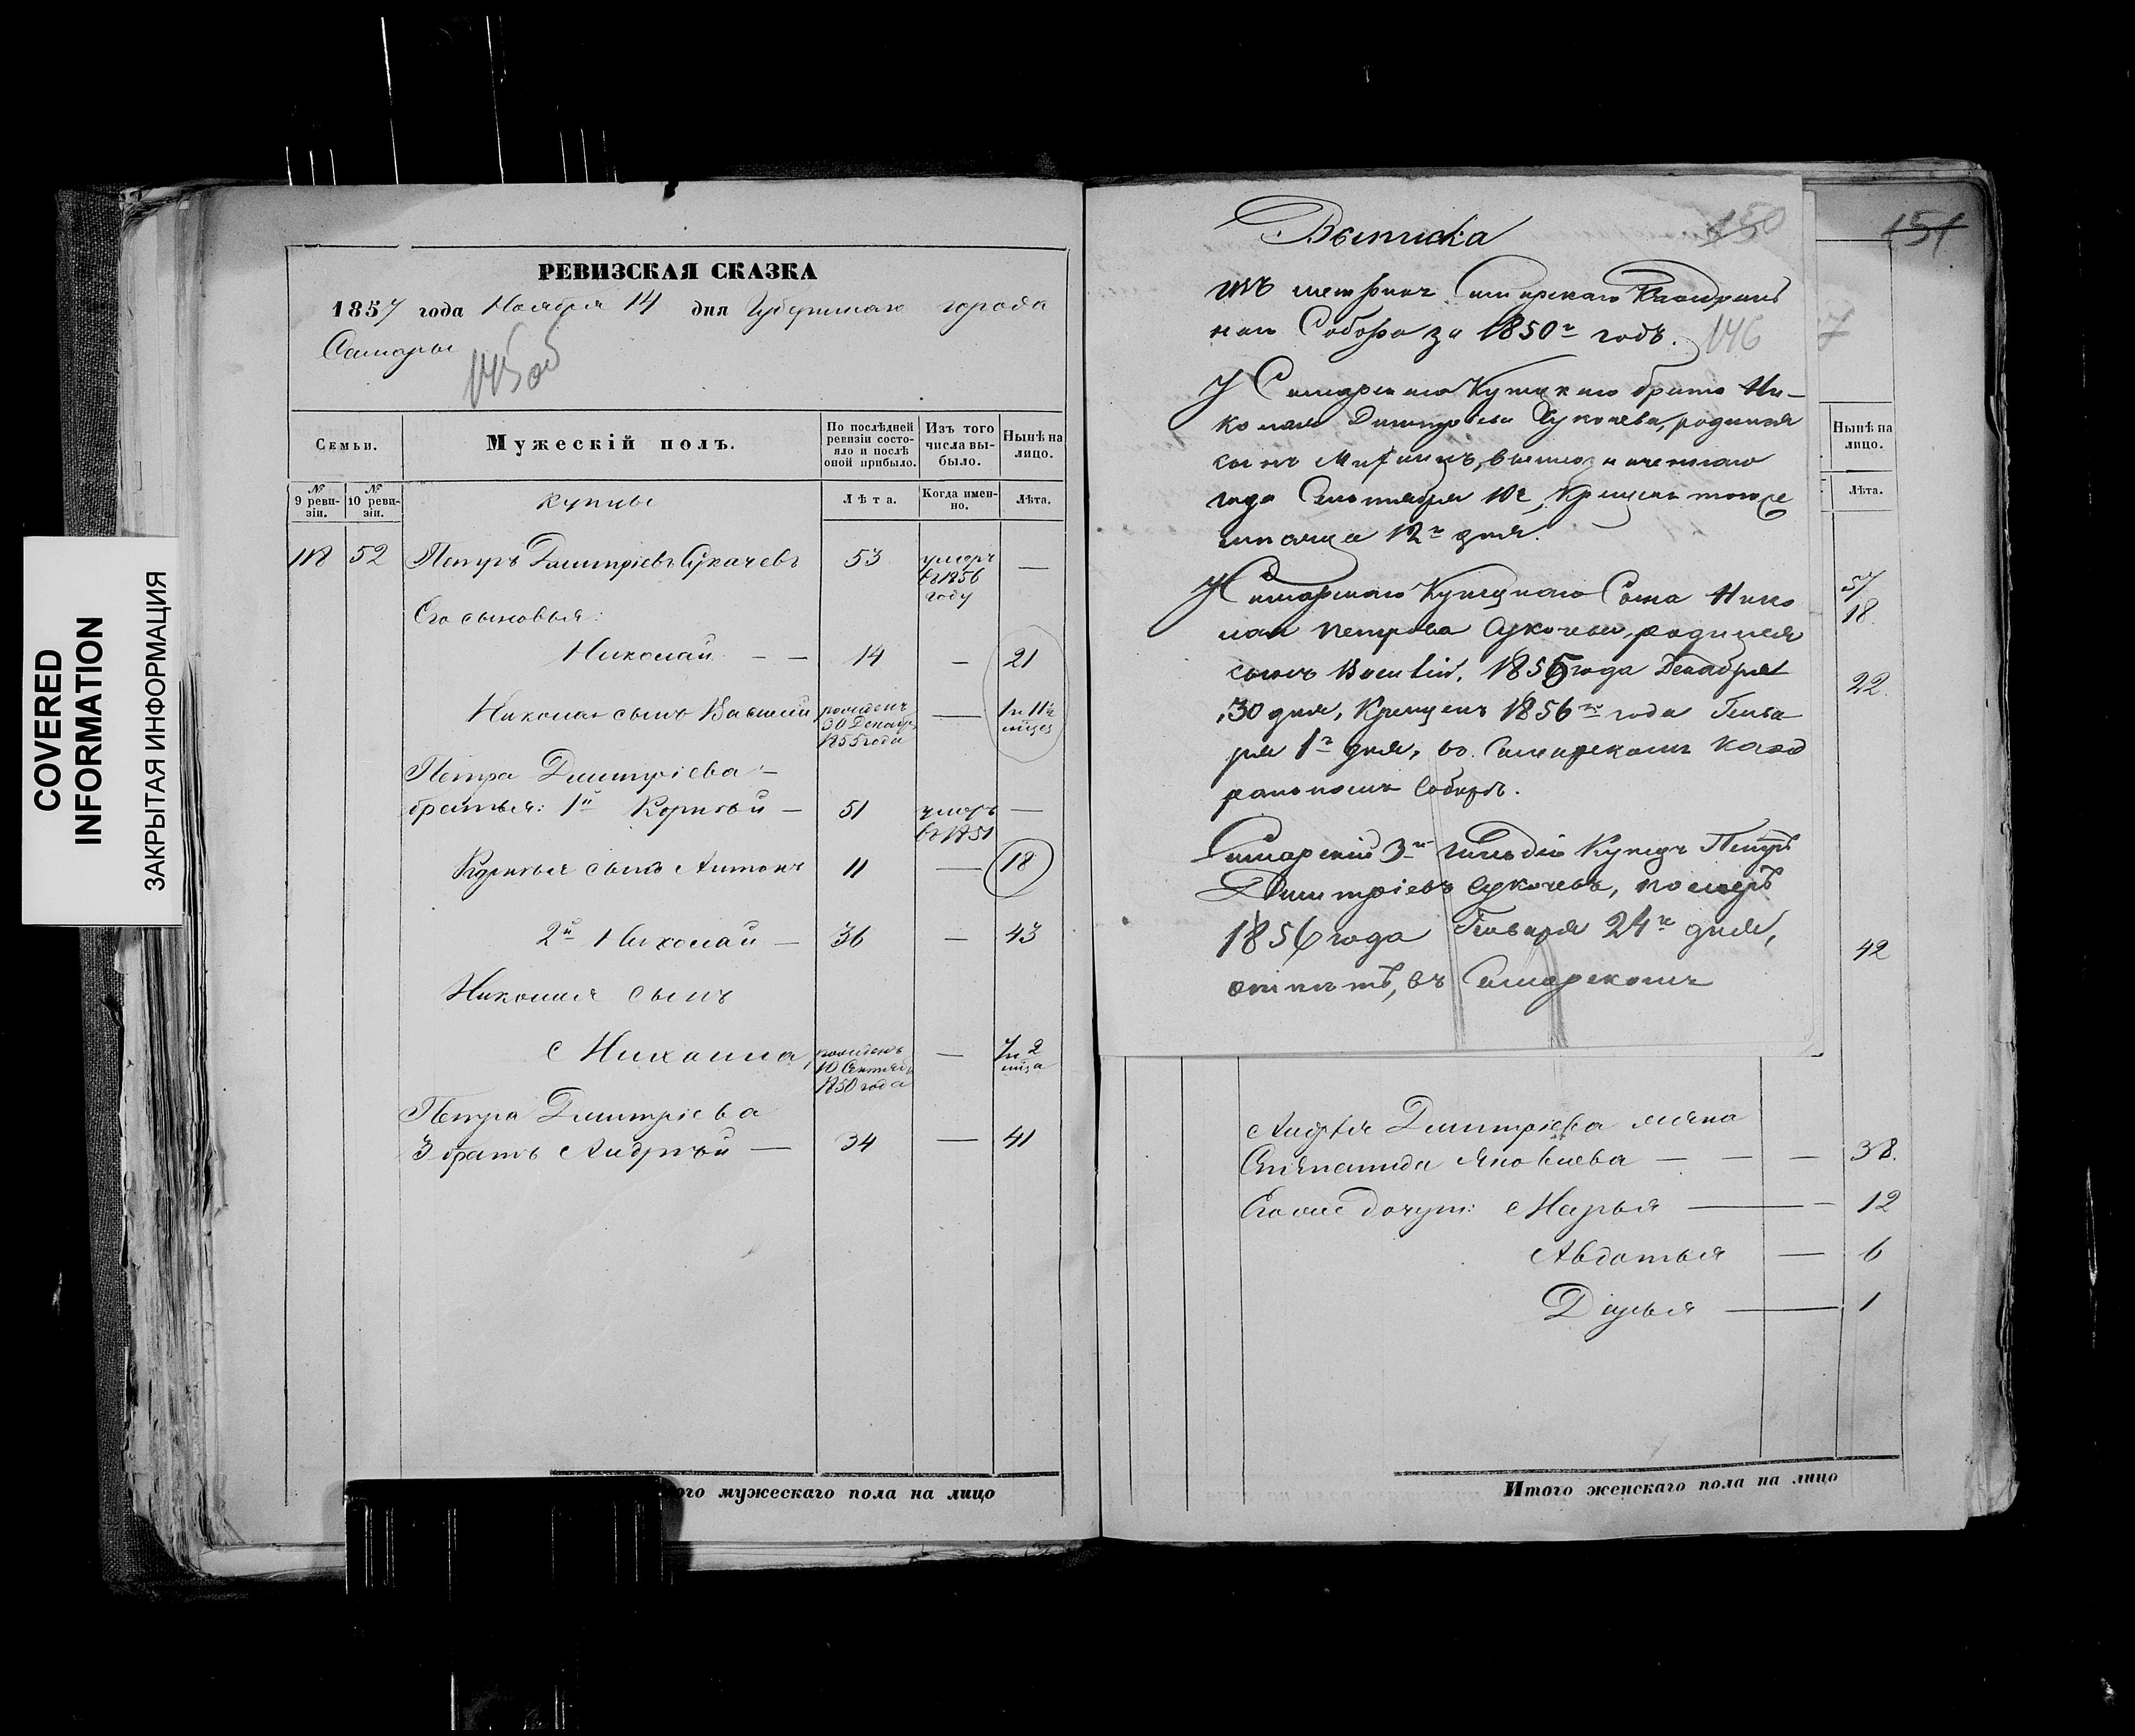 COVERED
INFORMATION
ЗАКРЫТАЯ ИНФОРМАЦИЯ
РЕВИЗСКАЯ СКАЗКА
1857 года Ноября 14 дня Губернскаго города
Самары
145об
Семьи.
Мужескій полъ.
По послѣдней ревизіи состояло и послѣ оной прибыло.
Изъ того числа выбыло.
Нынѣ на лицо.
№ 9 ревизіи.
№ 10 ревизіи.
Купцы
Лѣта.
Когда именно.
Лѣта.
118 52 Петръ Дмитріевъ Сукачевъ 53 умеръ въ 1856 году —
Его сыновья:
Николай — — 14 — 21
Николая сынъ Василій рожденъ 30 Декабр. 1855 года — 1 и 11½ мѣсяц
Петра Дмитріева
братья: 1й Корнѣй — 51 умеръ въ 1851 —
Корнѣя сынъ Антонъ 11 — 18
2й Николай — 36 — 43
Николая сынъ
Михаила рожденъ 10 Сентяб. 1850 года — 7 и 2 мѣца
Петра Дмитріева
3 братъ Андрѣй — 34 — 41
Итого мужескаго пола на лицо
Выписка
150
изъ метрикъ Самарскаго Каѳедраль
наго Собора за 1850й годъ. 146
У Самарскаго Купецкаго брата Ни-
колая Дмитріева Сукачева, родился
сынъ Михаилъ, вышеозначеннаго
года Сентября 10е, Крещенъ тогоже
мѣсяца 12го дня.
У Самарскаго Купецкаго Сына Нико
лая Петрова Сукачева, родился
сынъ Василій, 1855 года Декабря
30 дня, Крещенъ 1856го года Генва
ря 1го дня, въ Самарскомъ Каѳед
ральномъ Соборѣ.
Самарскій 3й гильдіи Купецъ Петръ
Дмитріевъ Сукачевъ, померъ
1856 года Генваря 24го дня,
отпѣтъ, въ Самарскомъ
151
Нынѣ на лицо.
Лѣта.
57
18.
22.
42
Андрѣя Дмитріева жена
Степанида Яковлева — — — 38.
Его же дочери: Марья — 12
Авдотья — 6
Дарья — 1
Итого женскаго пола на лицо